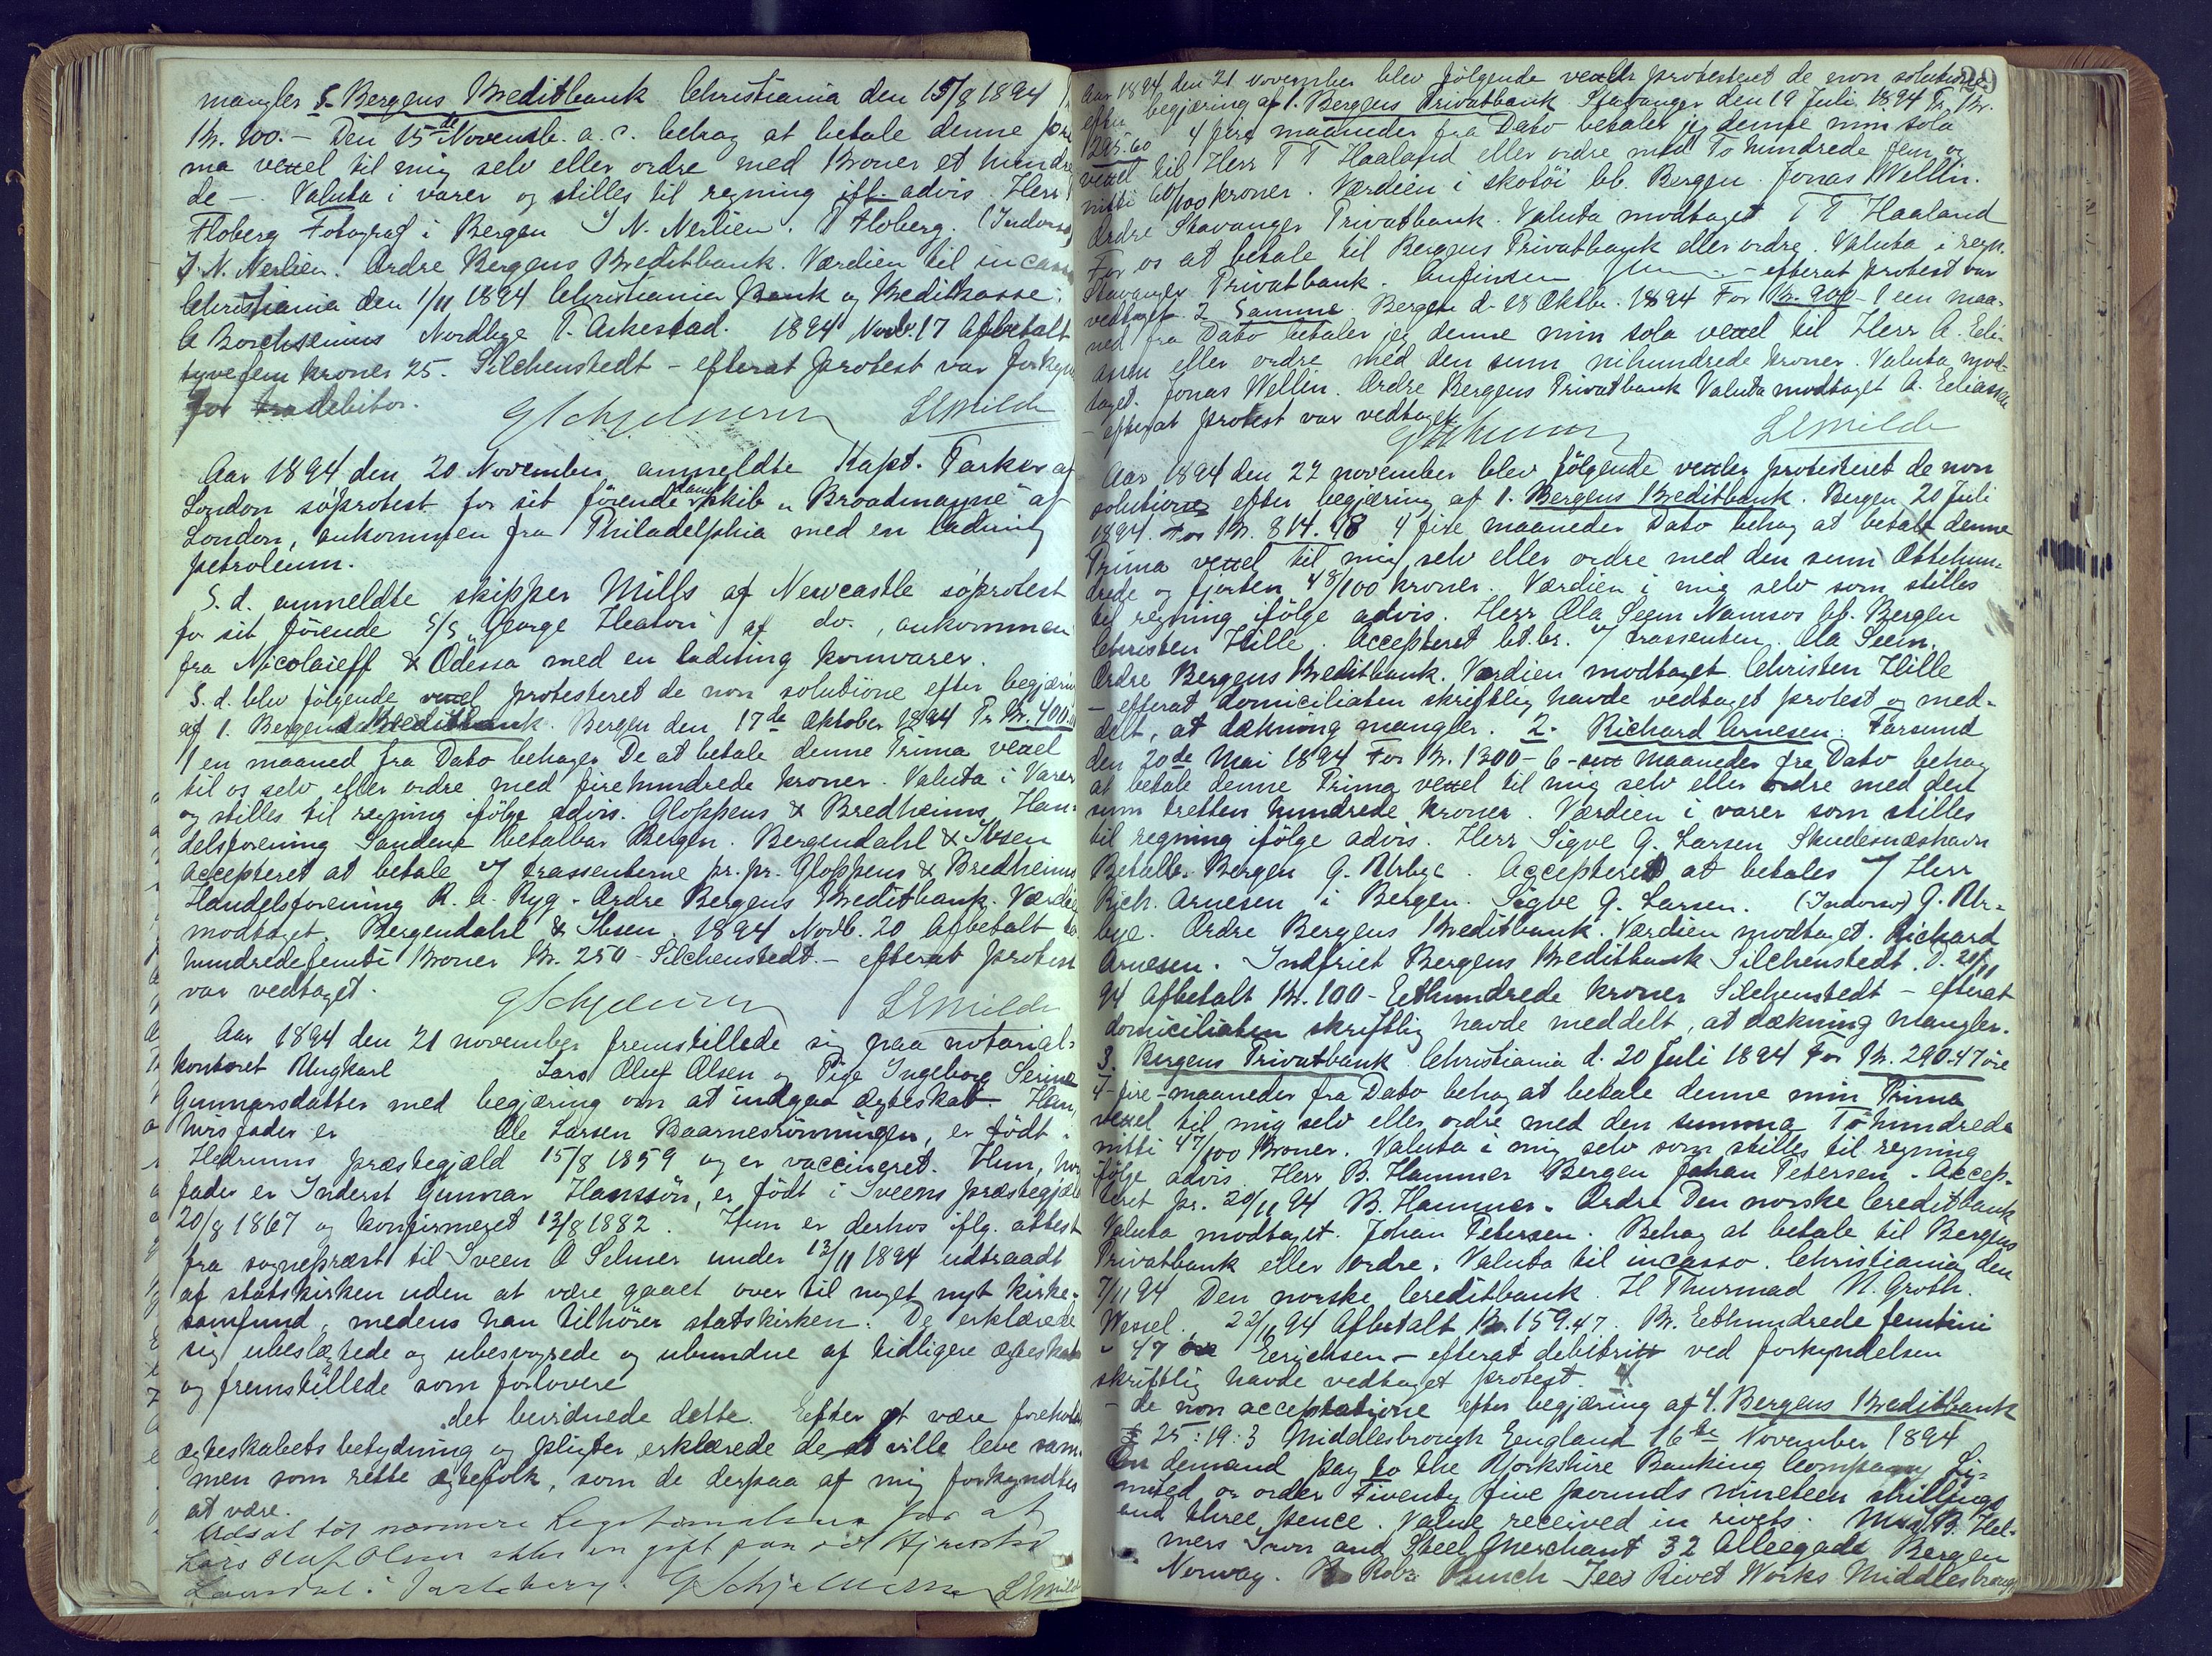 mangler 5. Bergens Kreditbank Christiania den 15/8 1894
Kr. 100.- Den 15de Novemb. a. c. behag at betale denne pri
ma vexel til mig selv eller ordre med Kroner et hundre
de -. Valuta i varer og stilles til regning ifl. advis. Herr
Floberg Fotograf i Bergen J N. Nerlien. T Floberg. (Indorso)
J. N. Nerlien. Ordre Bergens Kreditbank. Værdien til incasso
Christiania den 1/11 1894 Christiania Bank og Kreditkasse.
C Borchsenius Nordbye T. Askestad. 1894 Novb. 17 Afbetalt
tyvefem kroner 25. Silchenstedt - efterat protest var forkyn
for debitor.
G Schjelderup LEMilde
Aar 1894 den 20 November anmeldte Kapt. Parker af
London søprotest for sit førende damp skib "Broadmayne" af
London, ankommen fra Philadelphia med en ladning
petroleum.
S. d. anmeldte skipper Mills af Newcastle søprotest
for sit førende S/S "George Heaton" af do., ankommen
fra Nicolaieff & Odessa med en ladning kornvarer.
S. d. blev følgende vexel protesteret de non solutione efter begjæring
af 1. Bergens Kreditbank. Bergen den 17de Oktober 1894 Pr Kr. 400.
1 en maaned fra Dato behager De at betale denne Prima vexel
til os selv eller ordre med firehundrede kroner. Valuta i Varer
og stilles til regning ifølge advis. Gloppens & Bredheims Han-
delsforening Sandene betalbar Bergen. Bergendahl & Ibsen
Accepteret at betale trassenterne pr. pr. Gloppens & Bredheims
Handelsforening R. A. Ryg. Ordre Bergens Kreditbank. Værdien
modtaget. Bergendahl & Ibsen. 1894 Novb. 20 Afbetalt to
hundredefemti Kroner Kr. 250 - Silchenstedt. - efterat protest
var vedtaget.
G Schjelderup LEMilde
Aar 1894 den 21 november fremstillede sig paa notarial-
kontoret Ungkarl Lars Oluf Olsen og Pige Ingeborg Serine
Gunnarsdatter med begjæring om at indgaa ægteskab. Han,
hvis fader er Ole Larsen Baarnesrønningen, er født i
Hedrums præstegjæld 15/8 1859 og er vaccineret. Hun, hvis
fader er Inderst Gunnar Hanssøn, er født i Sveens præstegjæld
20/8 1867 og konfirmeret 13/8 1882. Hun er derhos iflg. attest
fra sognepræst til Sveen A Selmer under 13/11 1894 udtraadt
af statskirken uden at være gaaet over til noget nyt kirke-
samfund, medens han tilhører statskirken. De erklærede
sig ubeslægtede og ubesvogrede og ubundne af tidligere ægteskab
og fremstillede som forlovere
der bevidnede dette. Efter at være foreholdt
ægteskabets betydning og pligter erklærede de at ville leve sam-
men som rette ægtefolk, som de derpaa af mig forkyndtes
at være.
Udsat til nærmere Legitimationer for at
Lars Oluf Olsen ikke er gift paa sit Hjemsted
Laurdal i Jarlsberg. G Schjelderup LEMilde
29
Aar 1894, den 21 november blev følgende vexler protesteret de non solutione
efter begjæring af 1. Bergens Privatbank. Stavanger den 19 Juli 1894 Pr. Kr.
295.60 4 fire maaneder fra Dato betaler jeg denne min sola
vexel til Herr T T Haaland eller ordre med To hundrede fem og
nitti 60/100 kroner. Værdien i skotøi bb. Bergen. Jonas Wellin.
Ordre Stavanger Privatbank. Valuta modtaget T T Haaland
For os at betale til Bergens Privatbank eller ordre Valuta i regn.
Stavanger Privatbank. - efterat protest var
vedtaget. 2 Samme. Bergen d. 18 Oktbr. 1894 For Kr. 900 - 1 een maa-
ned fra Dato betaler jeg denne min sola vexel til Herr A. Eeli-
assen eller ordre med den sum nihundrede kroner. Valuta mod-
taget. Jonas Wellin. Ordre Bergens Privatbank Valuta modtaget A. Eeliassen
- efterat protest var vedtaget.
G Schjelderup LEMilde
Aar 1894 den 22 november blev følgende vexler protesteret de non
solutione efter begjæring af 1. Bergens Kreditbank. Bergen 20 Juli
1894. For Kr. 814.48 4 fire maaneder Dato behag at betale denne
Prima vexel til mig selv eller ordre med den sum Ottehun-
drede og fjorten 48/100 kroner. Værdien i mig selv som stilles
til regning ifølge advis. Herr Ola Seem Namsos bb. Bergen
Christen Hille. Accepteret bt. br. trassenten. Ola Seem.
Ordre Bergens Kreditbank. Værdien modtaget. Christen Hille
- efterat domiciliaten skriftlig havde vedtaget protest og med-
delt, at dækning mangler. 2. Richard Arnesen. Farsund
den 20de Mai 1894 For Kr. 1300 - 6 - sex maaneder fra Dato behag
at betale denne Prima vexel til mig selv eller ordre med den
sum tretten hundrede kroner. Værdien i varer som stilles
til regning ifølge advis. Herr Sigve G. Larsen Skudesnæshavn
Betalb. Bergen G. Urbye. Accepteret at betales Herr
Rich. Arnesen i Bergen. Sigve G. Larsen. (Indorso) G. Ur-
bye. Ordre Bergens Kreditbank. Værdien modtaget. Richard
Arnesen. Indfriet Bergens Kreditbank Silchenstedt. D. 21/11
94 Afbetalt Kr. 100 - Eethundrede kroner Silchenstedt - efterat
domiciliaten skriftlig havde meddelt, at dækning mangler.
3. Bergens Privatbank Christiania d. 20 Juli 1894 For Kr. 290.47 øre
4 - fire - maaneder fra Dato behag at betale denne min Prima
vexel til mig selv eller ordre med den summa To hundrede
nitti 47/100 Kroner. Valuta i mig selv som stilles til regning
ifølge advis. Herr B. Hammer Bergen Johan Petersen. Accep-
teret pr. 20/11 94 B. Hammer. Ordre Den norske Creditbank
Valuta modtaget. Johan Petersen. Behag at betale til Bergens
Privatbank eller ordre. Valuta til incasso. Christiania den
7/11 94 Den norske Creditbank. H Thurmad N. Groth.
Wessel. 22/11 94 Afbetalt Kr. 159.47. Kr. Eethundrede femtini
- 47 øre Erichsen - efterat debitrix ved forkyndelsen
skriftlig havde vedtaget protest.
- de non acceptatione efter begjæring af 4. Bergens Kreditbank
£ 25:19:3 Middlesbrough England 16th November 1894
On demand pay to the Yorkshire Banking Company Li-
mited or order Twenty five pounds nineteen shillings
and three pence. Value received in rivets. B. Hel-
mers Iron and Steel Merchant 32 Allegade Bergen
Norway. Robt Punch Tees Rivet Works Middlesbrough